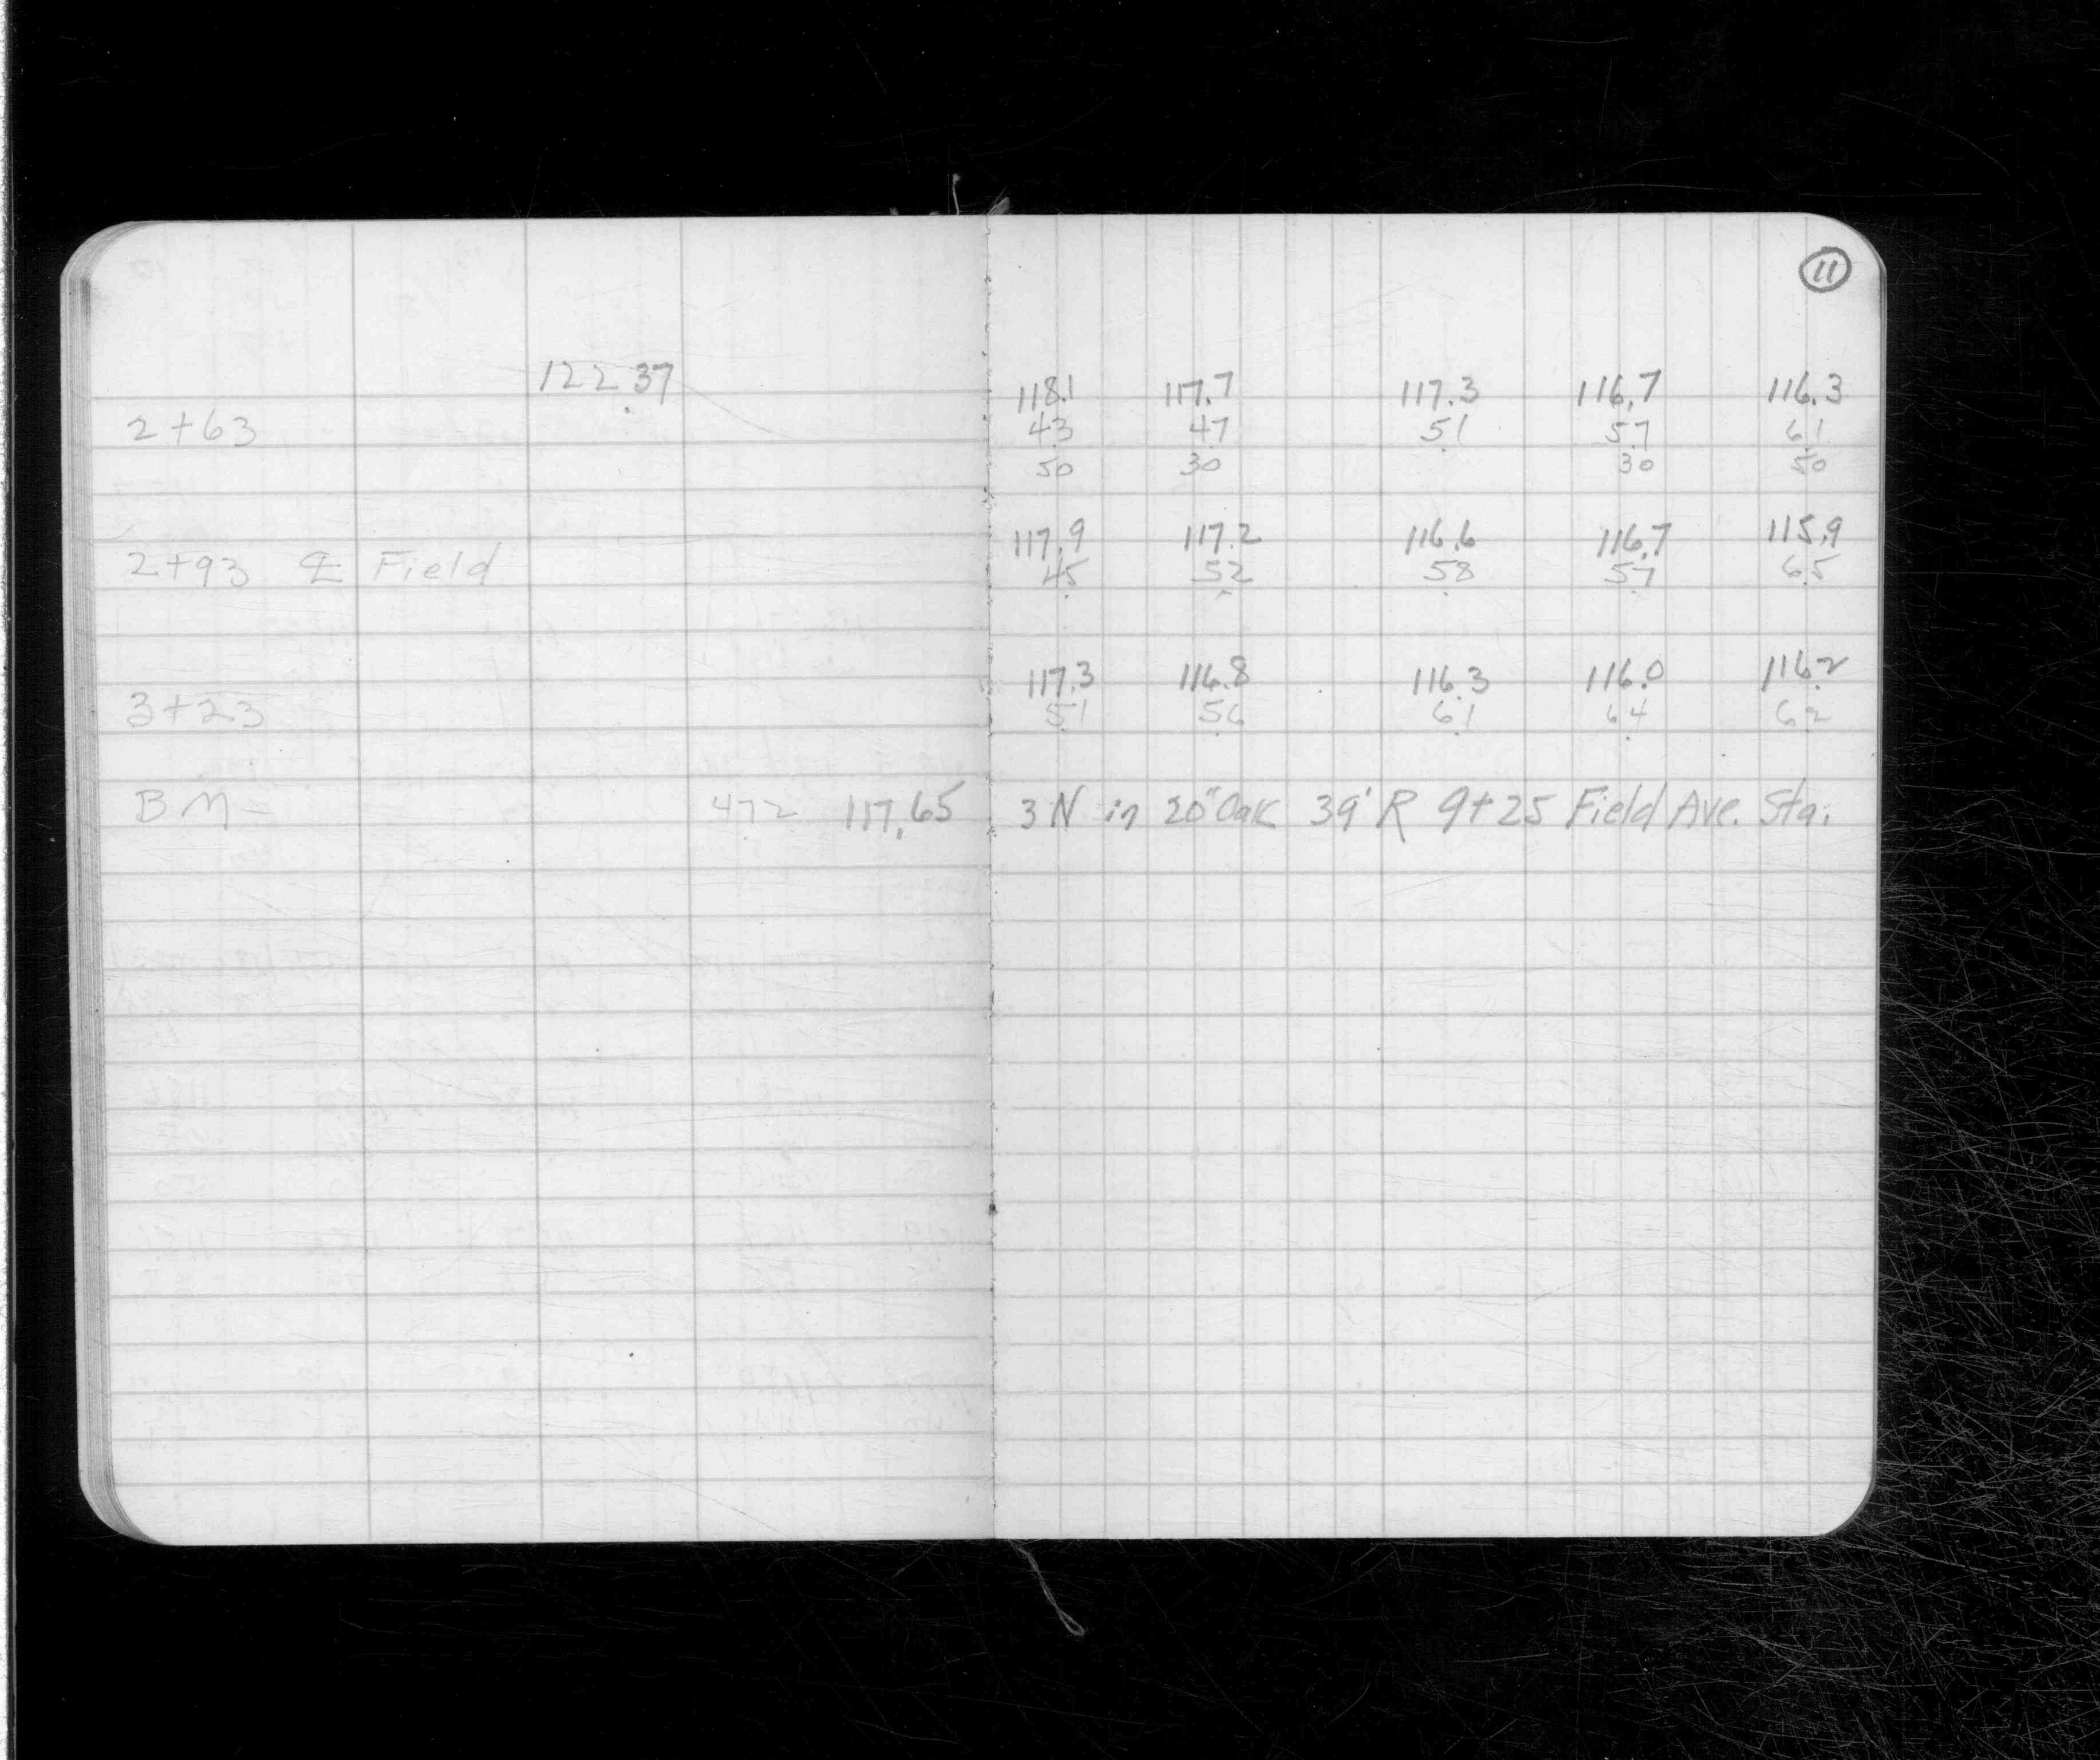 11
122.37 118.1 117.7 117.3 116.7 116.3
2+63 43 47 51 57 61
50 30 30 50
117.9 117.2 116.6 116.7 115.9
2+93 ℄ Field 45 52 58 57 65
117.3 116.8 116.3 116.0 116.2
3+23 51 56 61 64 62
BM- 472 117.65 3N in 20" Oak 39' R 9+25 Field Ave. Sta.